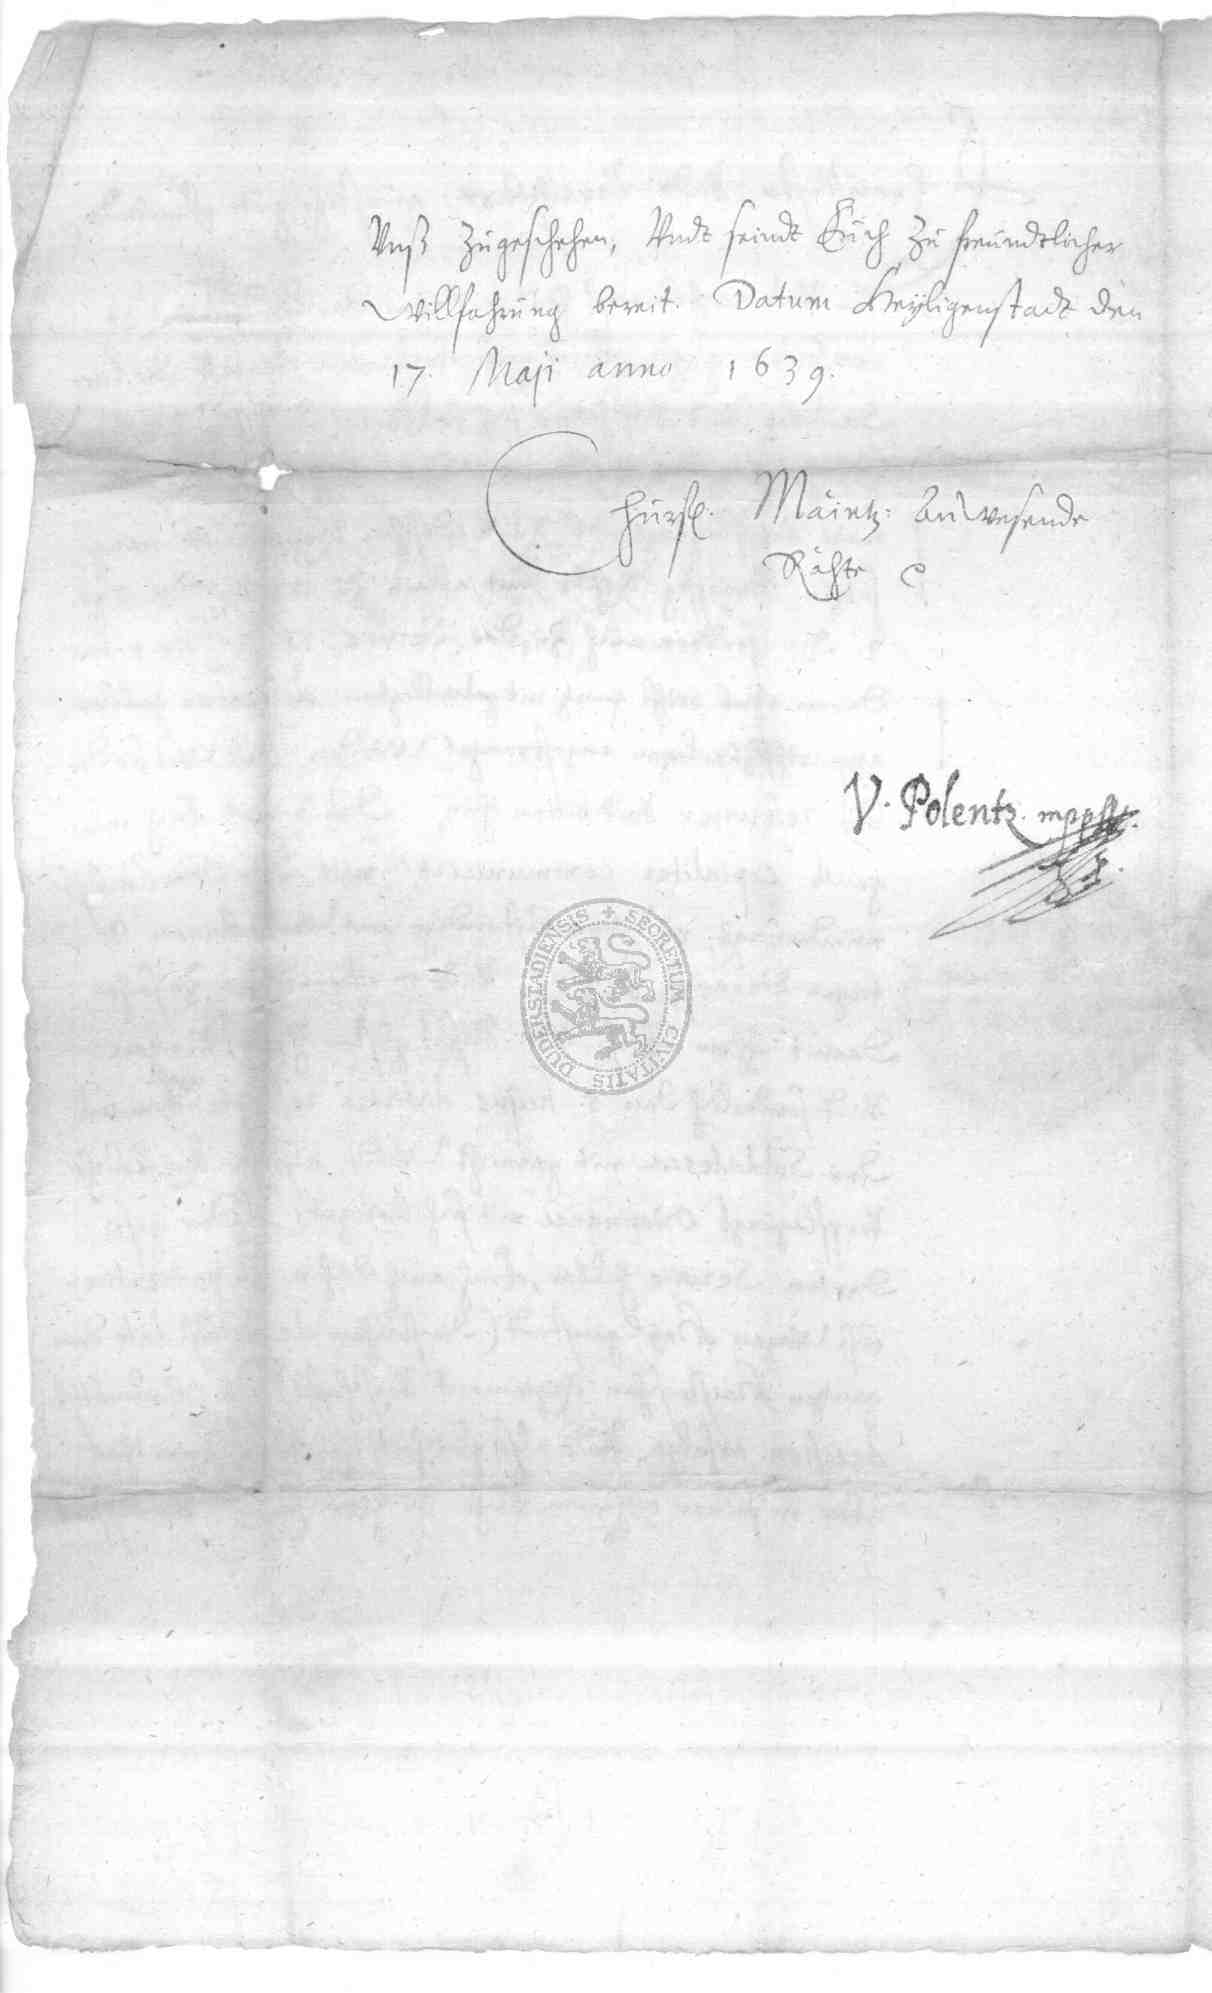 Vnß zugeschehen, Vndt seindt Euch zu freundtlicher
Willfahrung bereit. Datum Heyligenstadt den
17. Maji anno 1639.
Churfl. Mäintz: Anwesende
Rähte
V. Polentz. mppstr.
SECRETUM CIVITATIS DUDERSTADIENSIS